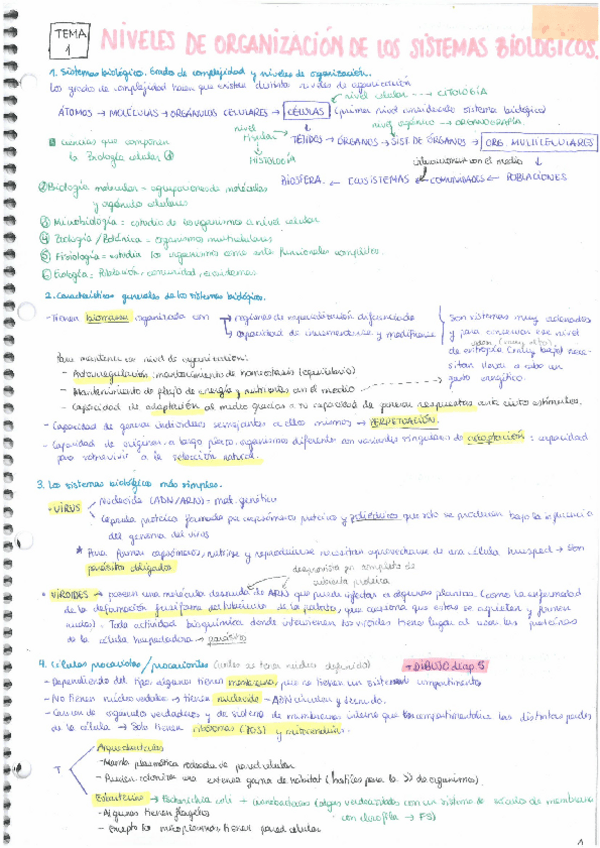 TEMA 1
NIVELES DE ORGANIZACIÓN DE LOS SISTEMAS BIOLOGICOS.
1. Sistemas biológico. Grado de complejidad y niveles de organización.
Los grados de complejidad hacen que existan distintos niveles de organización
nivel celular → CITOLOGÍA
ÁTOMOS → MOLÉCULAS → ORGÁNULOS CELULARES → CÉLULAS (primer nivel considerado sistema biológico)
nivel orgánico → ORGANOGRAFÍA
nivel tisular
TEJIDOS → ÓRGANOS → SIST DE ÓRGANOS → ORG. MULTICELULARES
HISTOLOGÍA
ciencias que componen
↳ Biología celular ①
interaccionan con el medio
BIOSFERA ← ECOSISTEMAS ← COMUNIDADES ← POBLACIONES
② Biología molecular - agrupaciones de moléculas
y orgánulos celulares
③ Microbiología = estudio de los organismos a nivel celular
④ Zoología / Botánica - organismos multicelulares
⑤ Fisiología = estudia los organismos como entes funcionales complejos
⑥ Ecología = Población, comunidad, ecosistemas
2. Características generales de los sistemas biológicos.
- Tienen biomasa organizada con → regímenes de reproducción diferenciada
→ capacidad de incrementarse y modificarse
Son sistemas muy ordenados
y para conservar ese nivel
de entropía (muy bajo) nece-
sitan llevar a cabo un
gasto energético.
Para mantener su nivel de organización:
- Autorregulación: mantenimiento de homeostasis (equilibrio)
- Mantenimiento de flujo de energía y nutrientes con el medio
- Capacidad de adaptación al medio gracias a su capacidad de generar respuestas ante ciertos estímulos.
- Capacidad de generar individuos semejantes a ellos mismos → PERPETUACIÓN.
- Capacidad de originar a largo plazo, organismos diferentes con variantes singulares de adaptación: capacidad
para sobrevivir a la selección natural.
3. Los sistemas biológicos más simples.
- VIRUS
Nucleoide (ADN/ARN) = mat. genético
Cápsula proteica formada por capsómeros proteicos y que sólo se producen bajo la influencia
del genoma del virus
* Para formar capsómeros, nutrirse y reproducirse necesitan aprovecharse de una célula huesped → son
parásitos obligados
desprovista por completo de
cubierta proteica
• VIROIDES → poseen una molécula desnuda de ARN que puede infectar a algunas plantas. (como la enfermedad
de la deformación fusiforme del tubérculo de la patata, que ocasiona que estas se agrieten y formen
nudos) - Toda actividad bioquímica donde intervienen los viroides tiene lugar al usar las proteínas
de la célula hospedadora → parásitos
4. Células procariotas / procariontes (antes de tener núcleo definido) * DIBUJO diap 5
- Dependiendo del tipo, algunas tienen membranas, pero no tienen un sistema compartimento
- No tienen núcleo verdadero → tienen nucleoide - ADN circular y desnudo.
- Carecen de orgánulos verdaderos y de sistema de membranas interno que compartimentalice las distintas partes
de la célula → Solo tienen ribosomas (70S) y
Arqueobacterias
- Memb. plasmática rodeada de pared celular
- Pueden colonizar una extensa gama de hábitat (hostiles para la >> de organismos).
Eubacterias → Escherichia coli + cianobacterias (algas verdeazuladas con un sistema de sáculos de membrana
con clorofila → FS)
- Algunas tienen flagelos
- Excepto los micoplasmas, tienen pared celular